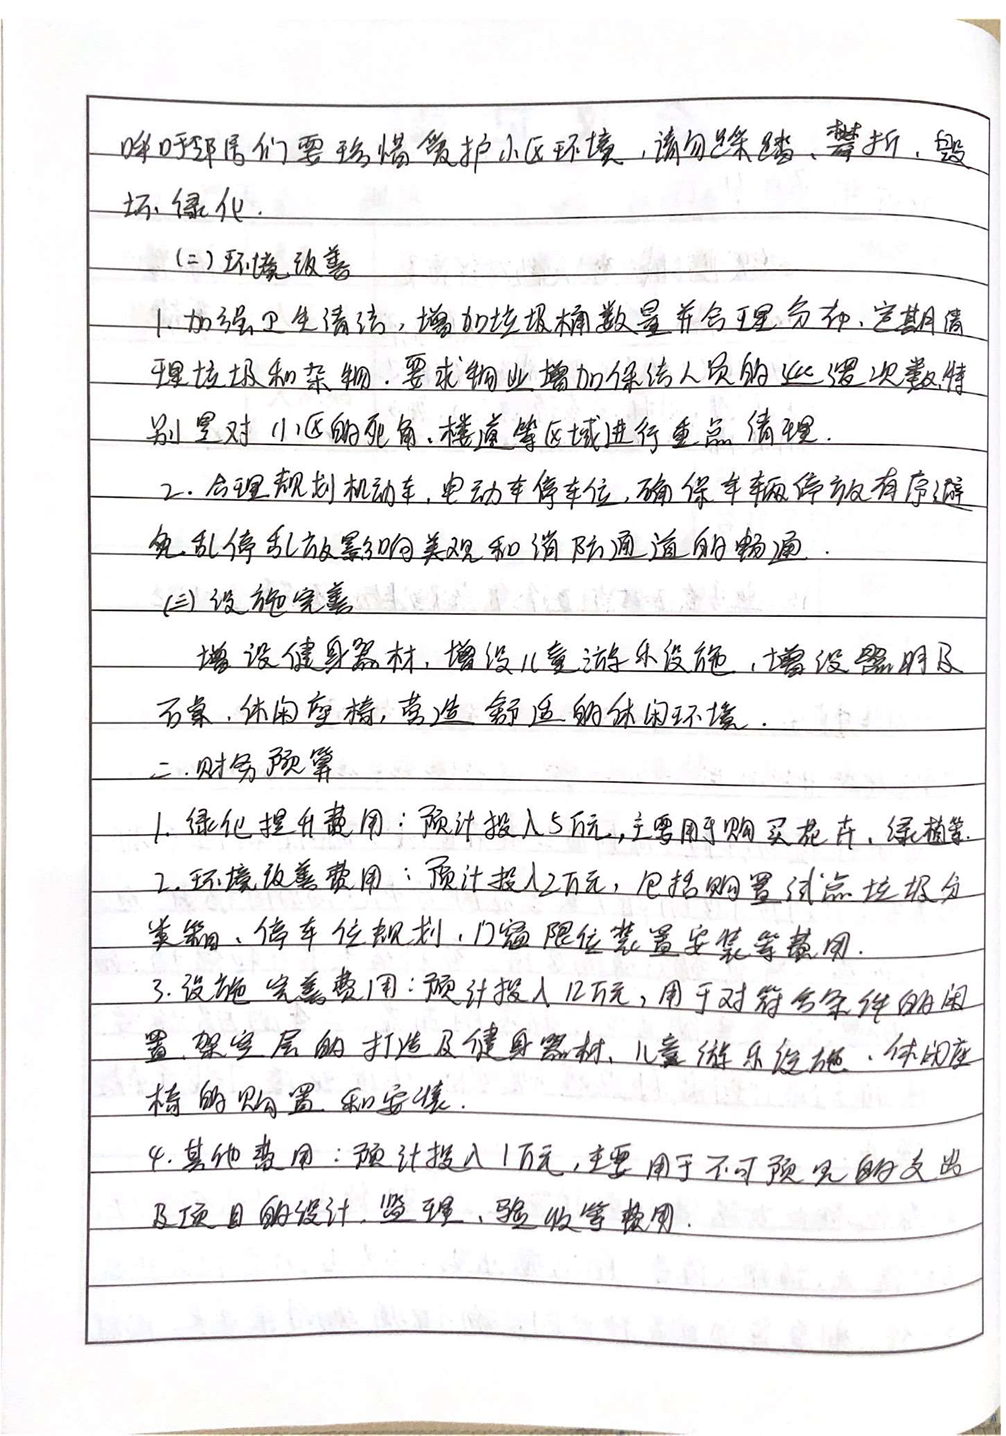 呼吁邻居们要珍惜爱护小区环境，请勿踩踏、攀折、毁
坏绿化.
(二)环境改善
1.加强卫生清洁，增加垃圾桶数量并合理分布、定期清
理垃圾和杂物.要求物业增加保洁人员的巡逻次数,特
别是对小区的死角、楼道等区域进行重点清理.
2.合理规划机动车,电动车停车位,确保车辆停放有序,避
免乱停乱放影响美观和消防通道的畅通.
(三)设施完善
增设健身器材,增设儿童游乐设施,增设照明及
石桌、休闲座椅,营造舒适的休闲环境.
二.财务预算
1.绿化提升费用：预计投入5万元,主要用于购买花卉、绿植等.
2.环境改善费用：预计投入2万元，包括购置试点垃圾分
类箱、停车位规划、门窗限位装置安装等费用.
3.设施完善费用：预计投入12万元，用于对符合条件的闲
置架空层的打造及健身器材、儿童游乐设施、休闲座
椅的购置和安装.
4.其他费用：预计投入1万元,主要用于不可预见的支出
及项目的设计、监理、验收等费用.